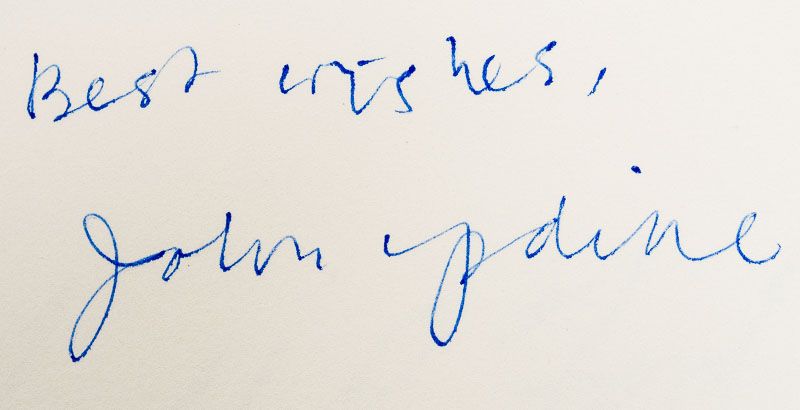 Best wishes,
John Updike